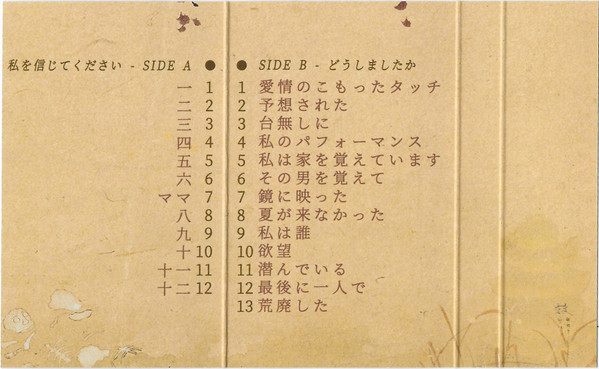 私を信じてください - SIDE A ●
一 1
二 2
三 3
四 4
五 5
六 6
ママ 7
八 8
九 9
十 10
十一 11
十二 12
● SIDE B - どうしましたか
1 愛情のこもったタッチ
2 予想された
3 台無しに
4 私のパフォーマンス
5 私は家を覚えています
6 その男を覚えて
7 鏡に映った
8 夏が来なかった
9 私は誰
10 欲望
11 潜んでいる
12 最後に一人で
13 荒廃した